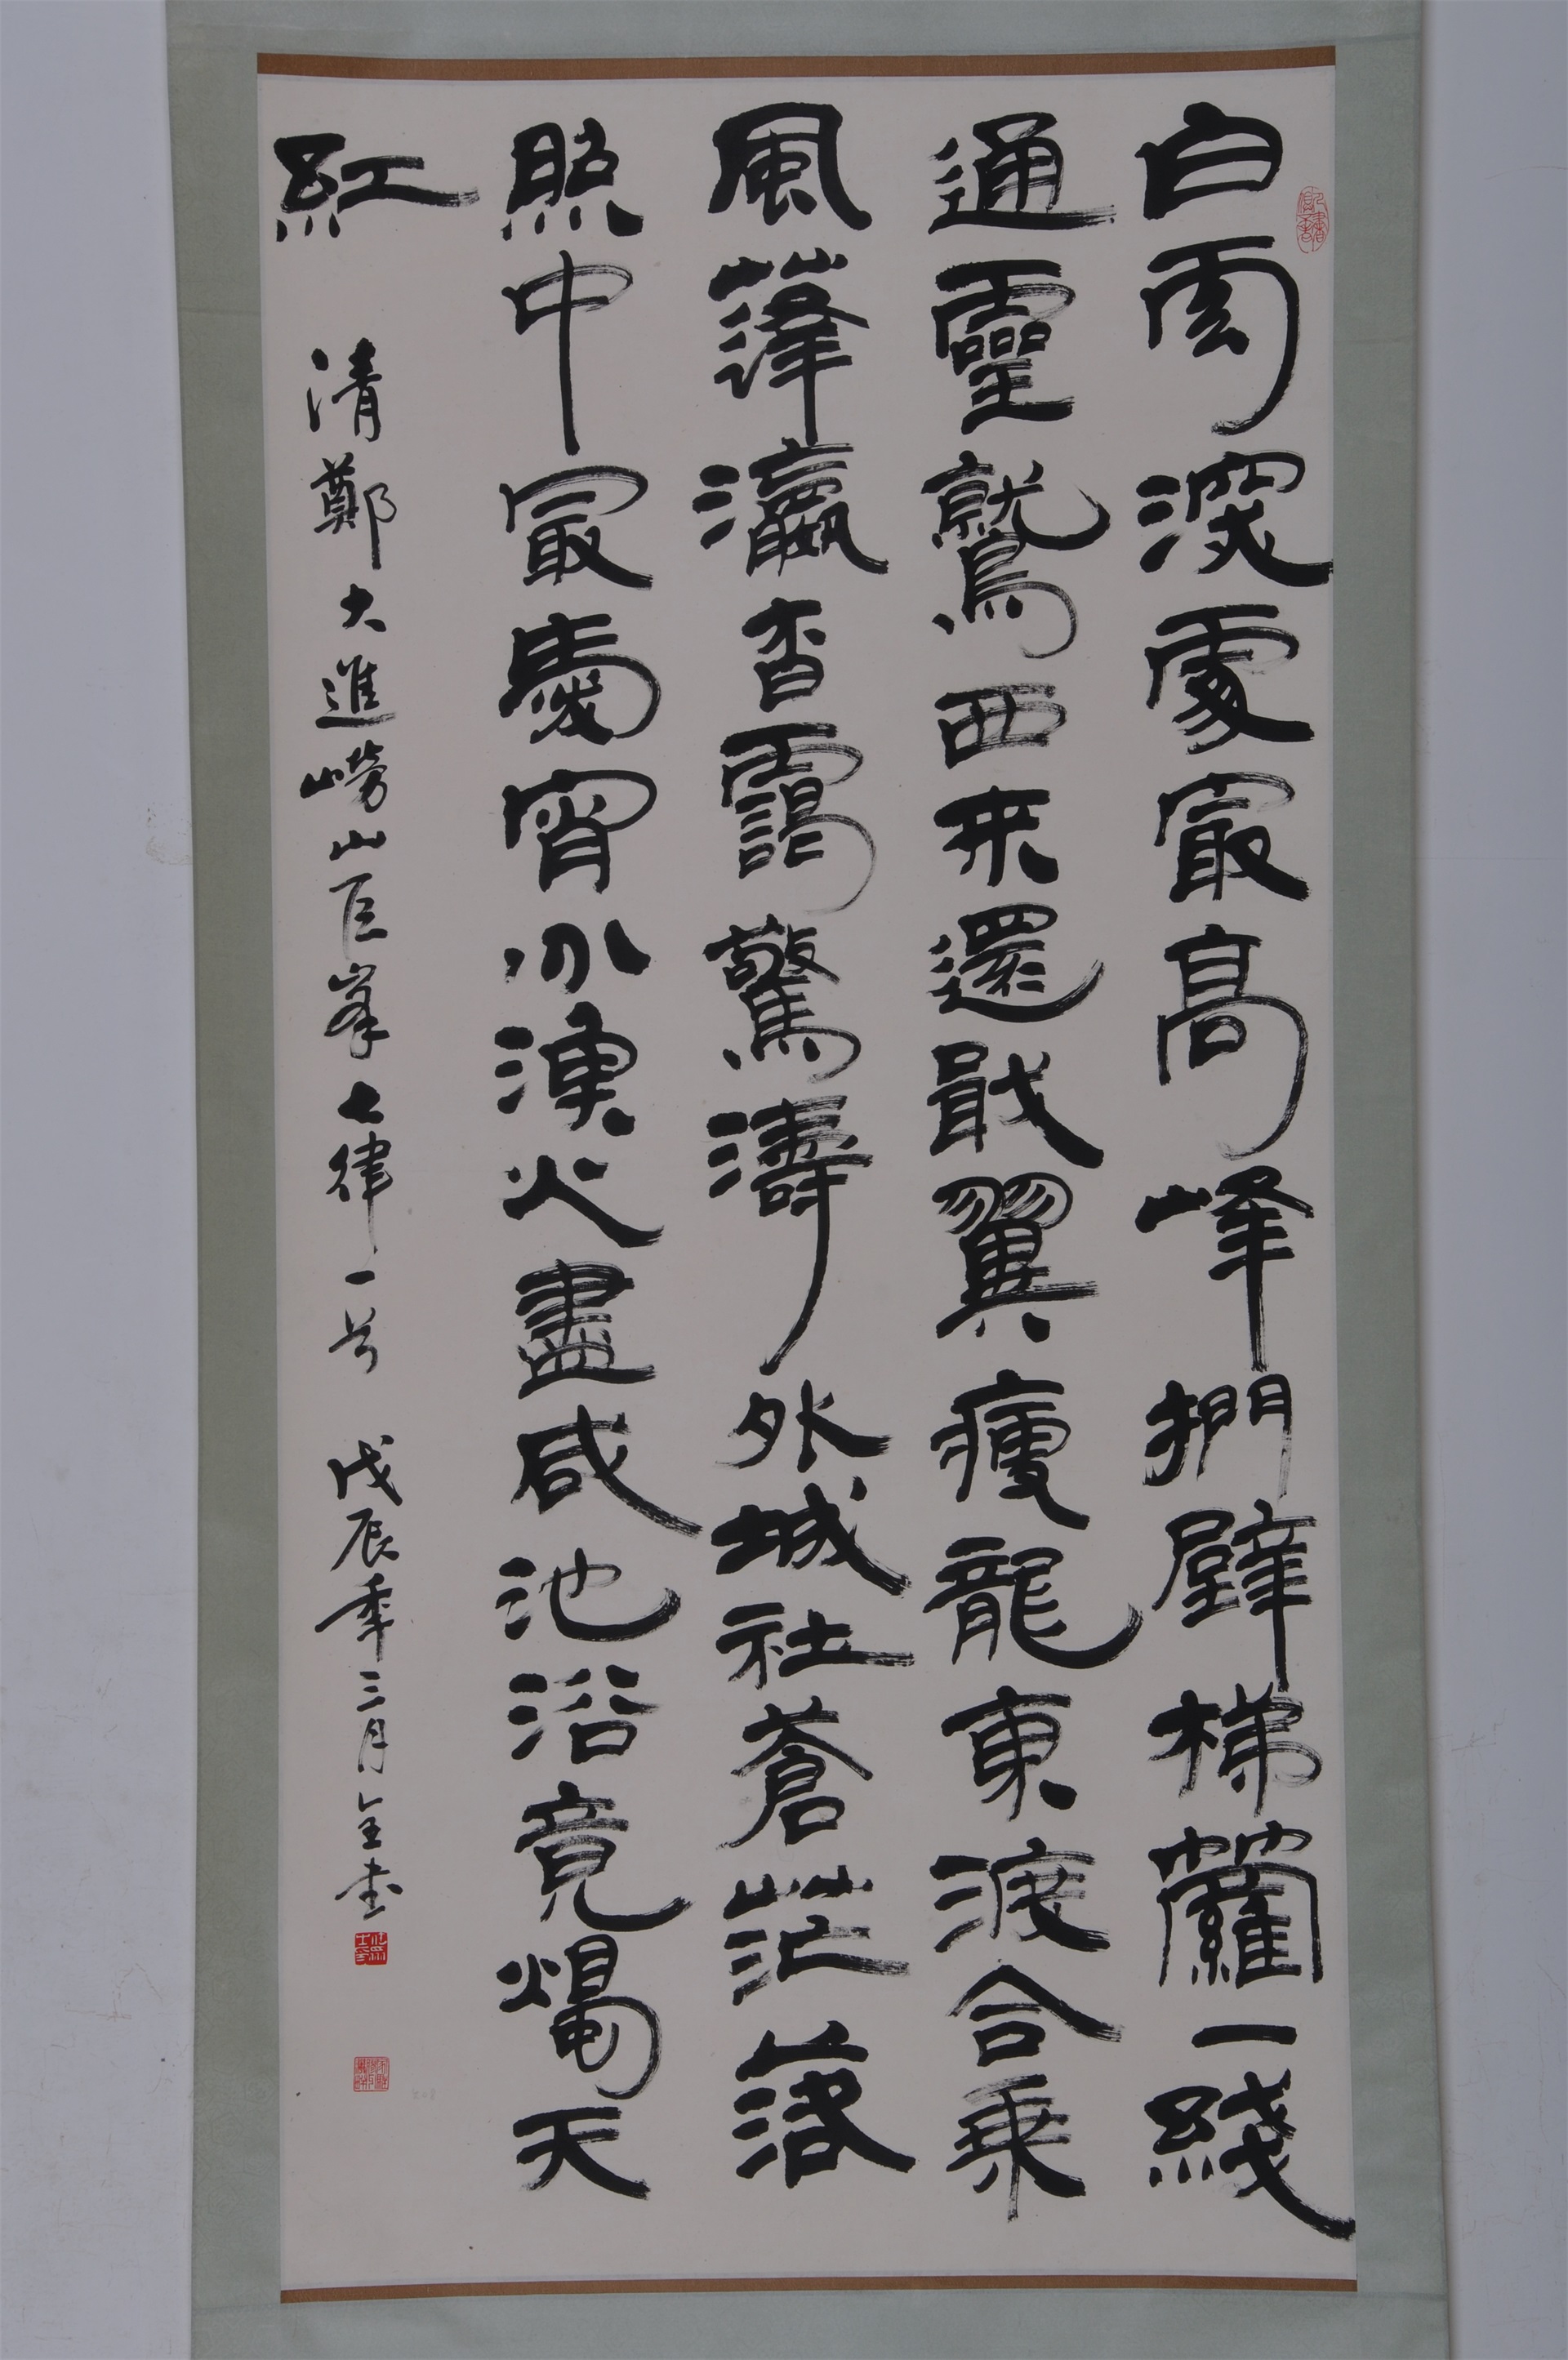 白雲深處最高峰捫壁梯蘿一綫
通靈鷲西来還戢翼瘦龍東渡合乘
風蓬瀛杳靄驚濤外城社蒼茫落
照中最愛宵分漁火盡咸池浴竟燭天
紅
清鄭大進嶗山巨峯七律一首 戊辰年三月 書